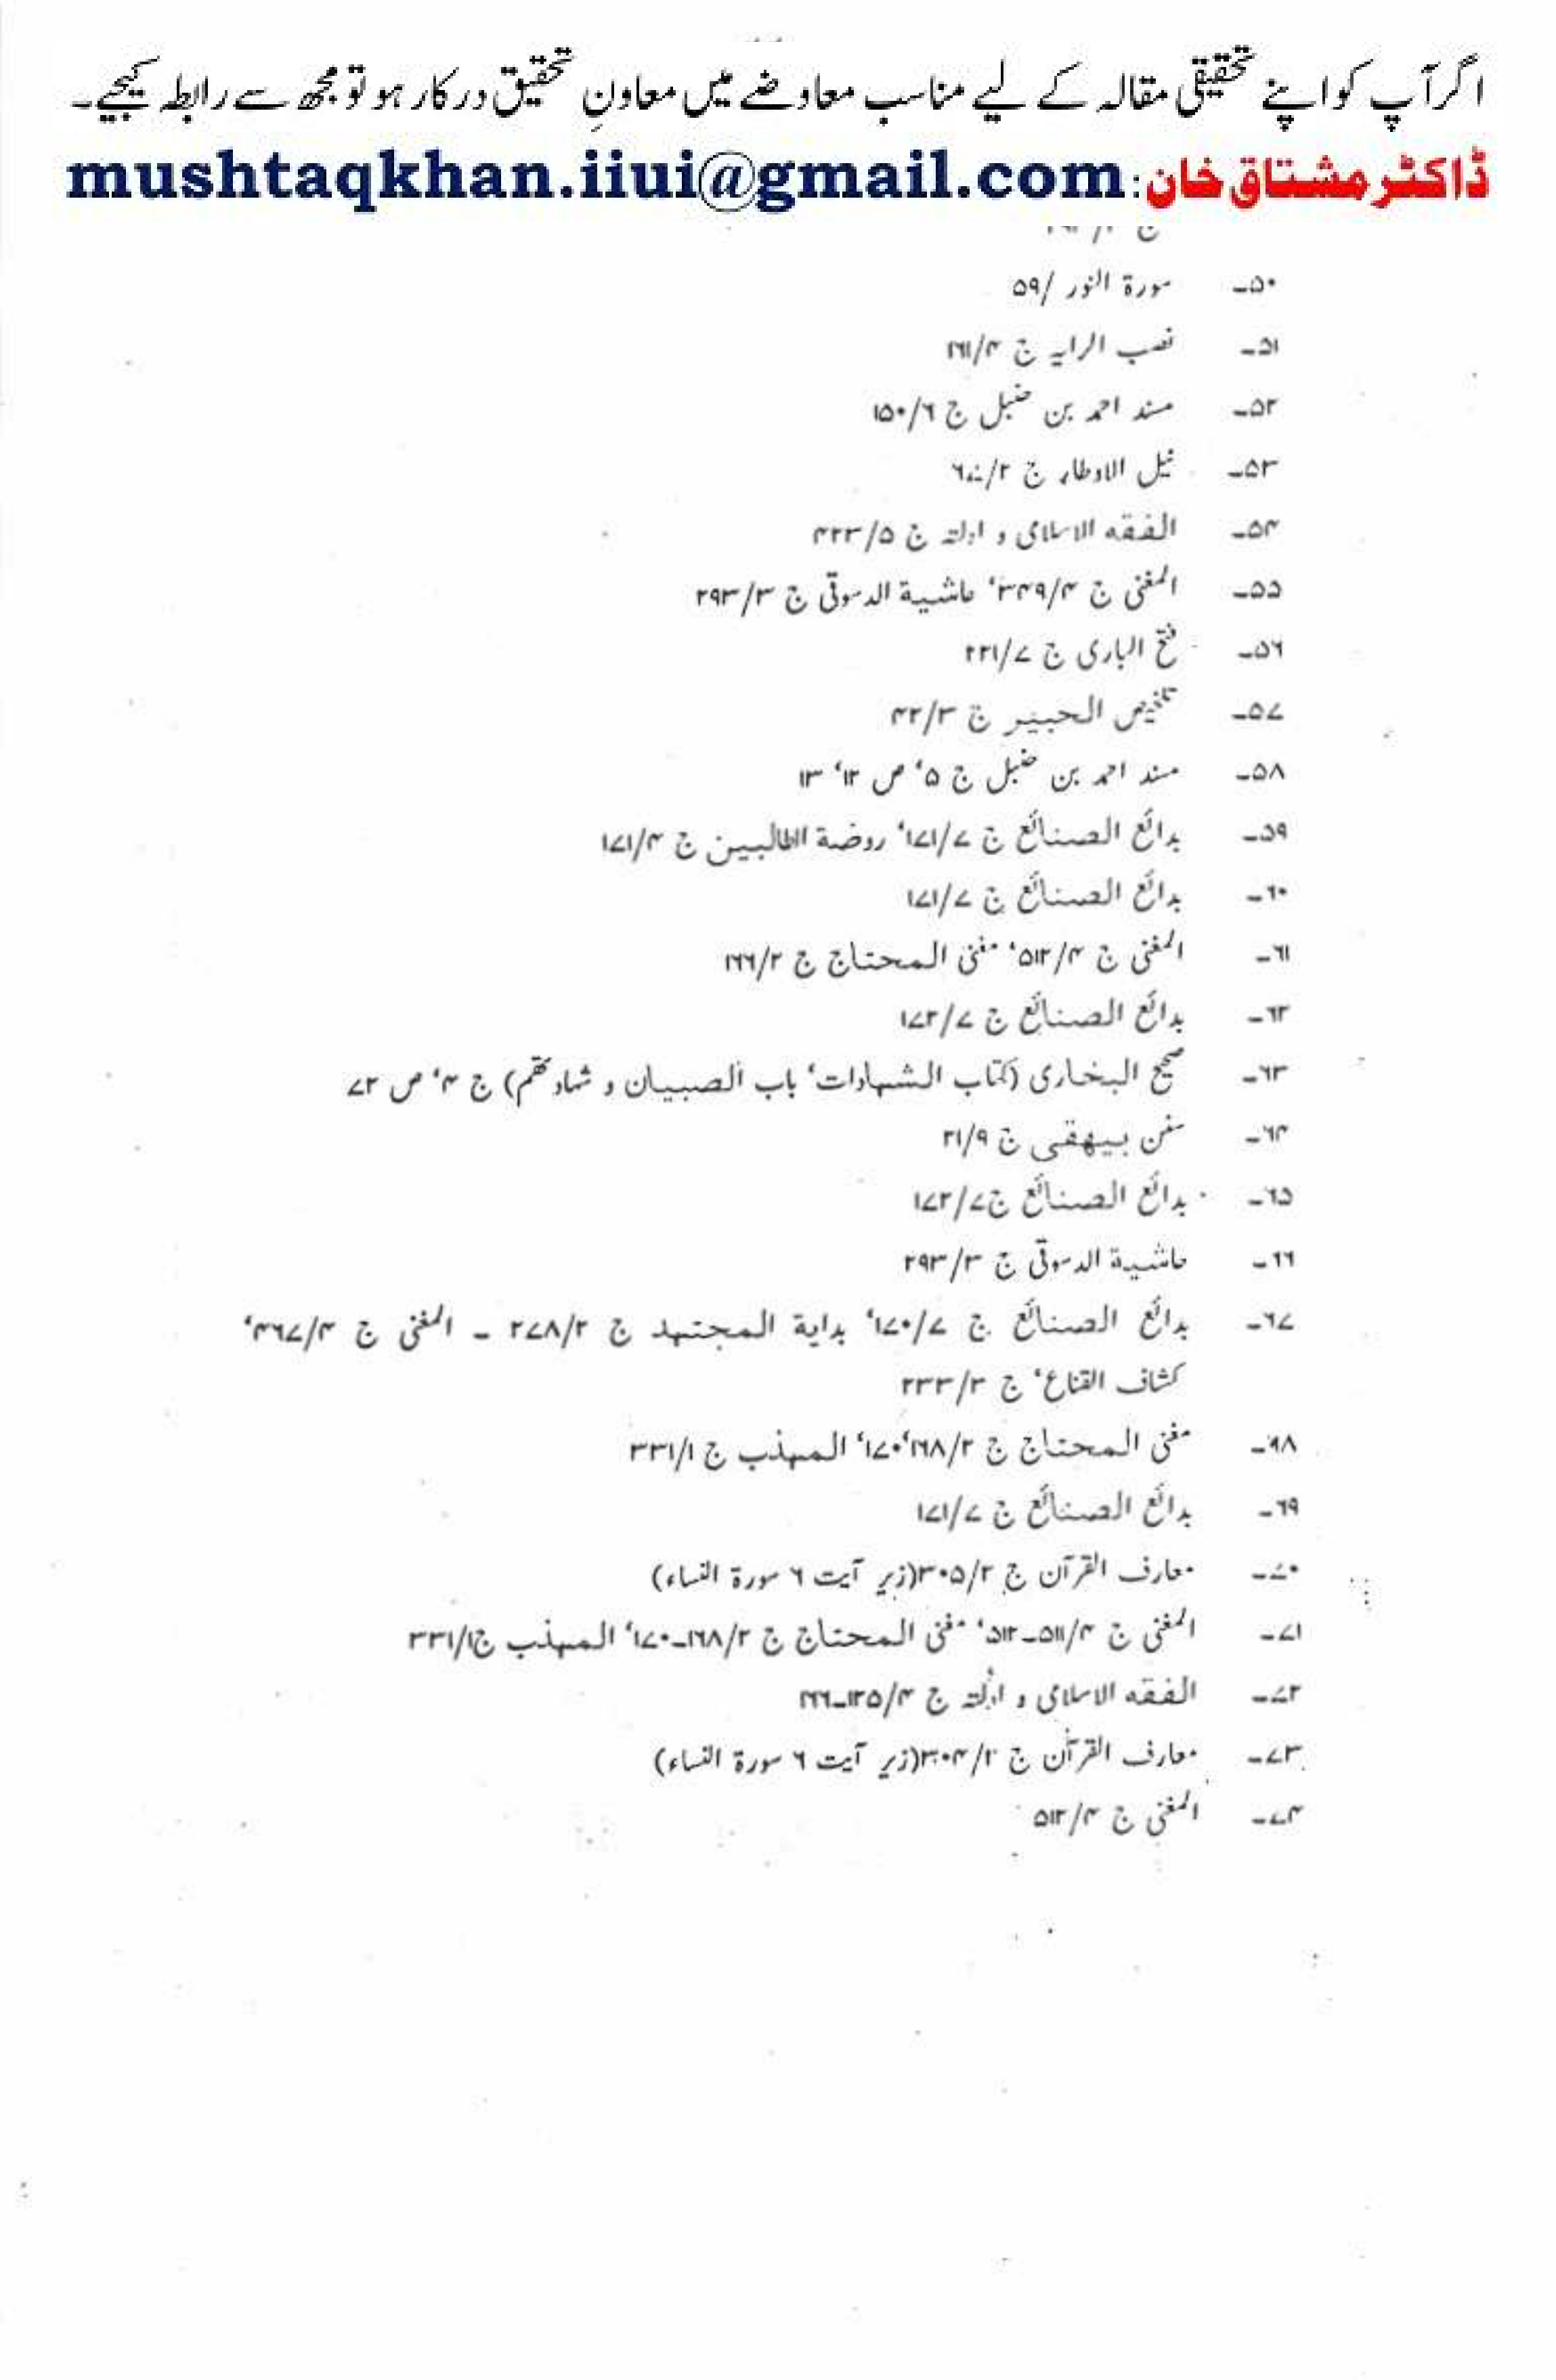 اگر آپ کو اپنے تحقیقی مقالہ کے لیے مناسب معاوضے میں معاونِ تحقیق درکار ہو تو مجھ سے رابطہ کیجیے۔
ڈاکٹر مشتاق خان: mushtaqkhan.iiui@gmail.com
۵۰۔ سورۃ النور /۵۹
۵۱۔ نصب الرایہ ج ۴/۱۶۱
۵۲۔ مسند احمد بن حنبل ج ۶/۱۵۰
۵۳۔ نیل الاوطار ج
۵۴۔ الفقه الاسلامی و ادلتہ ج ۵/۴۲۳
۵۵۔ المغنی ج ۴/۳۴۹، حاشیة الدسوقی ج ۳/۲۹۳
۵۶۔ فتح الباری ج ۷/۲۲۱
۵۷۔ تلخیص الحبیر ج ۳/۴۲
۵۸۔ مسند احمد بن حنبل ج ۵، ص ۱۲، ۱۳
۵۹۔ بدائع الصنائع ج ۷/۱۷۱، روضة الطالبین ج ۴/۱۷۱
۶۰۔ بدائع الصنائع ج ۷/۱۷۱
۶۱۔ المغنی ج ۴/۵۱۲، مغنی المحتاج ج ۲/۱۶۶
۶۲۔ بدائع الصنائع ج ۷/۱۷۲
۶۳۔ صحیح البخاری (کتاب الشهادات، باب الصبیان و شہادتھم) ج ۴، ص ۷۲
۶۴۔ سنن بیهقی ج ۹/۲۱
۶۵۔ بدائع الصنائع ج۷/۱۷۲
۶۶۔ حاشیة الدسوقی ج ۳/۲۹۳
۶۷۔ بدائع الصنائع ج ۷/۱۷۰، بدایة المجتهد ج ۲/۲۷۸ - المغنی ج ۴/۴۶۷،
کشاف القناع، ج ۳/۲۳۳
۶۸۔ مغنی المحتاج ج ۲/۱۶۸،۱۷۰، المهذب ج ۱/۳۳۱
۶۹۔ بدائع الصنائع ج ۷/۱۷۱
۷۰۔ معارف القرآن ج ۲/۳۰۵(زیر آیت ۶ سورۃ النساء)
۷۱۔ المغنی ج ۴/۵۱۱۔۵۱۲، مغنی المحتاج ج ۲/۱۶۸۔۱۷۰، المهذب ج۱/۳۳۱
۷۲۔ الفقه الاسلامی و ادلّتہ ج ۴/۱۲۵۔۱۲۶
۷۳۔ معارف القرآن ج ۲/۳۰۴(زیر آیت ۶ سورۃ النساء)
۷۴۔ المغنی ج ۴/۵۱۲